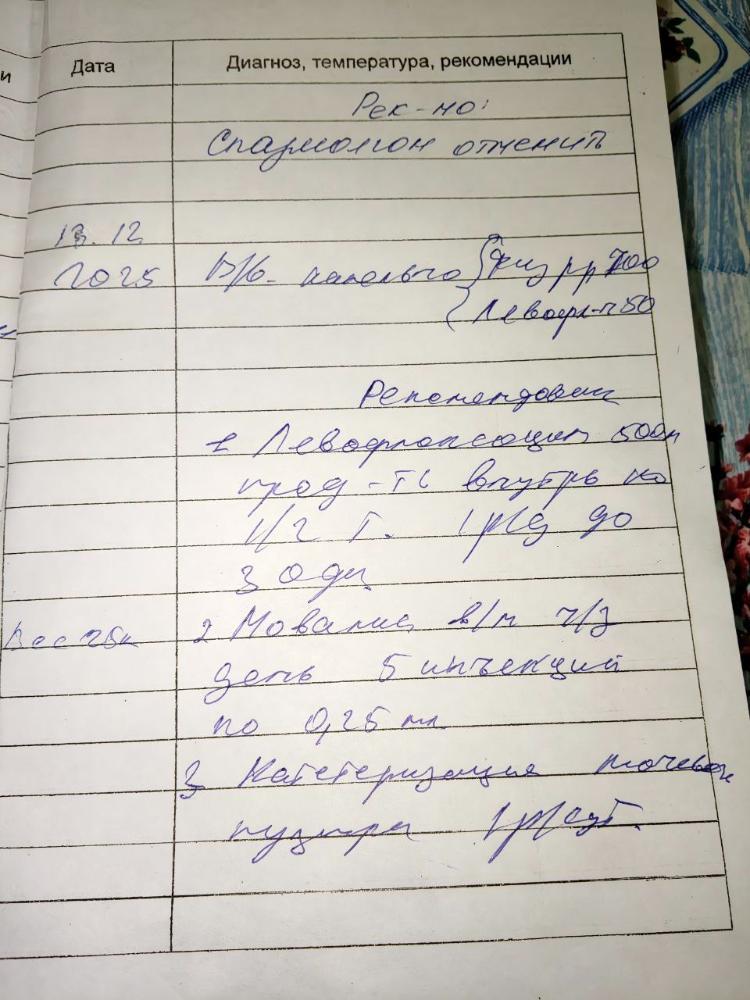 и
Дата
Диагноз, температура, рекомендации
Рек-но:
Спазмолгон отменить
13.12
2025
В/в капельно
Физ рр 700
Левофл-н 50
Рекомендован
1 Левофлоксацин 500м
прод-ть внутрь по
1/2 т. 1р/д до
30 дн
Вес 25к
2 Мовалис в/м ч/з
день 5 инъекций
по 0,25 мл
3 Катетеризация мочевого
пузыря 1р/сут.